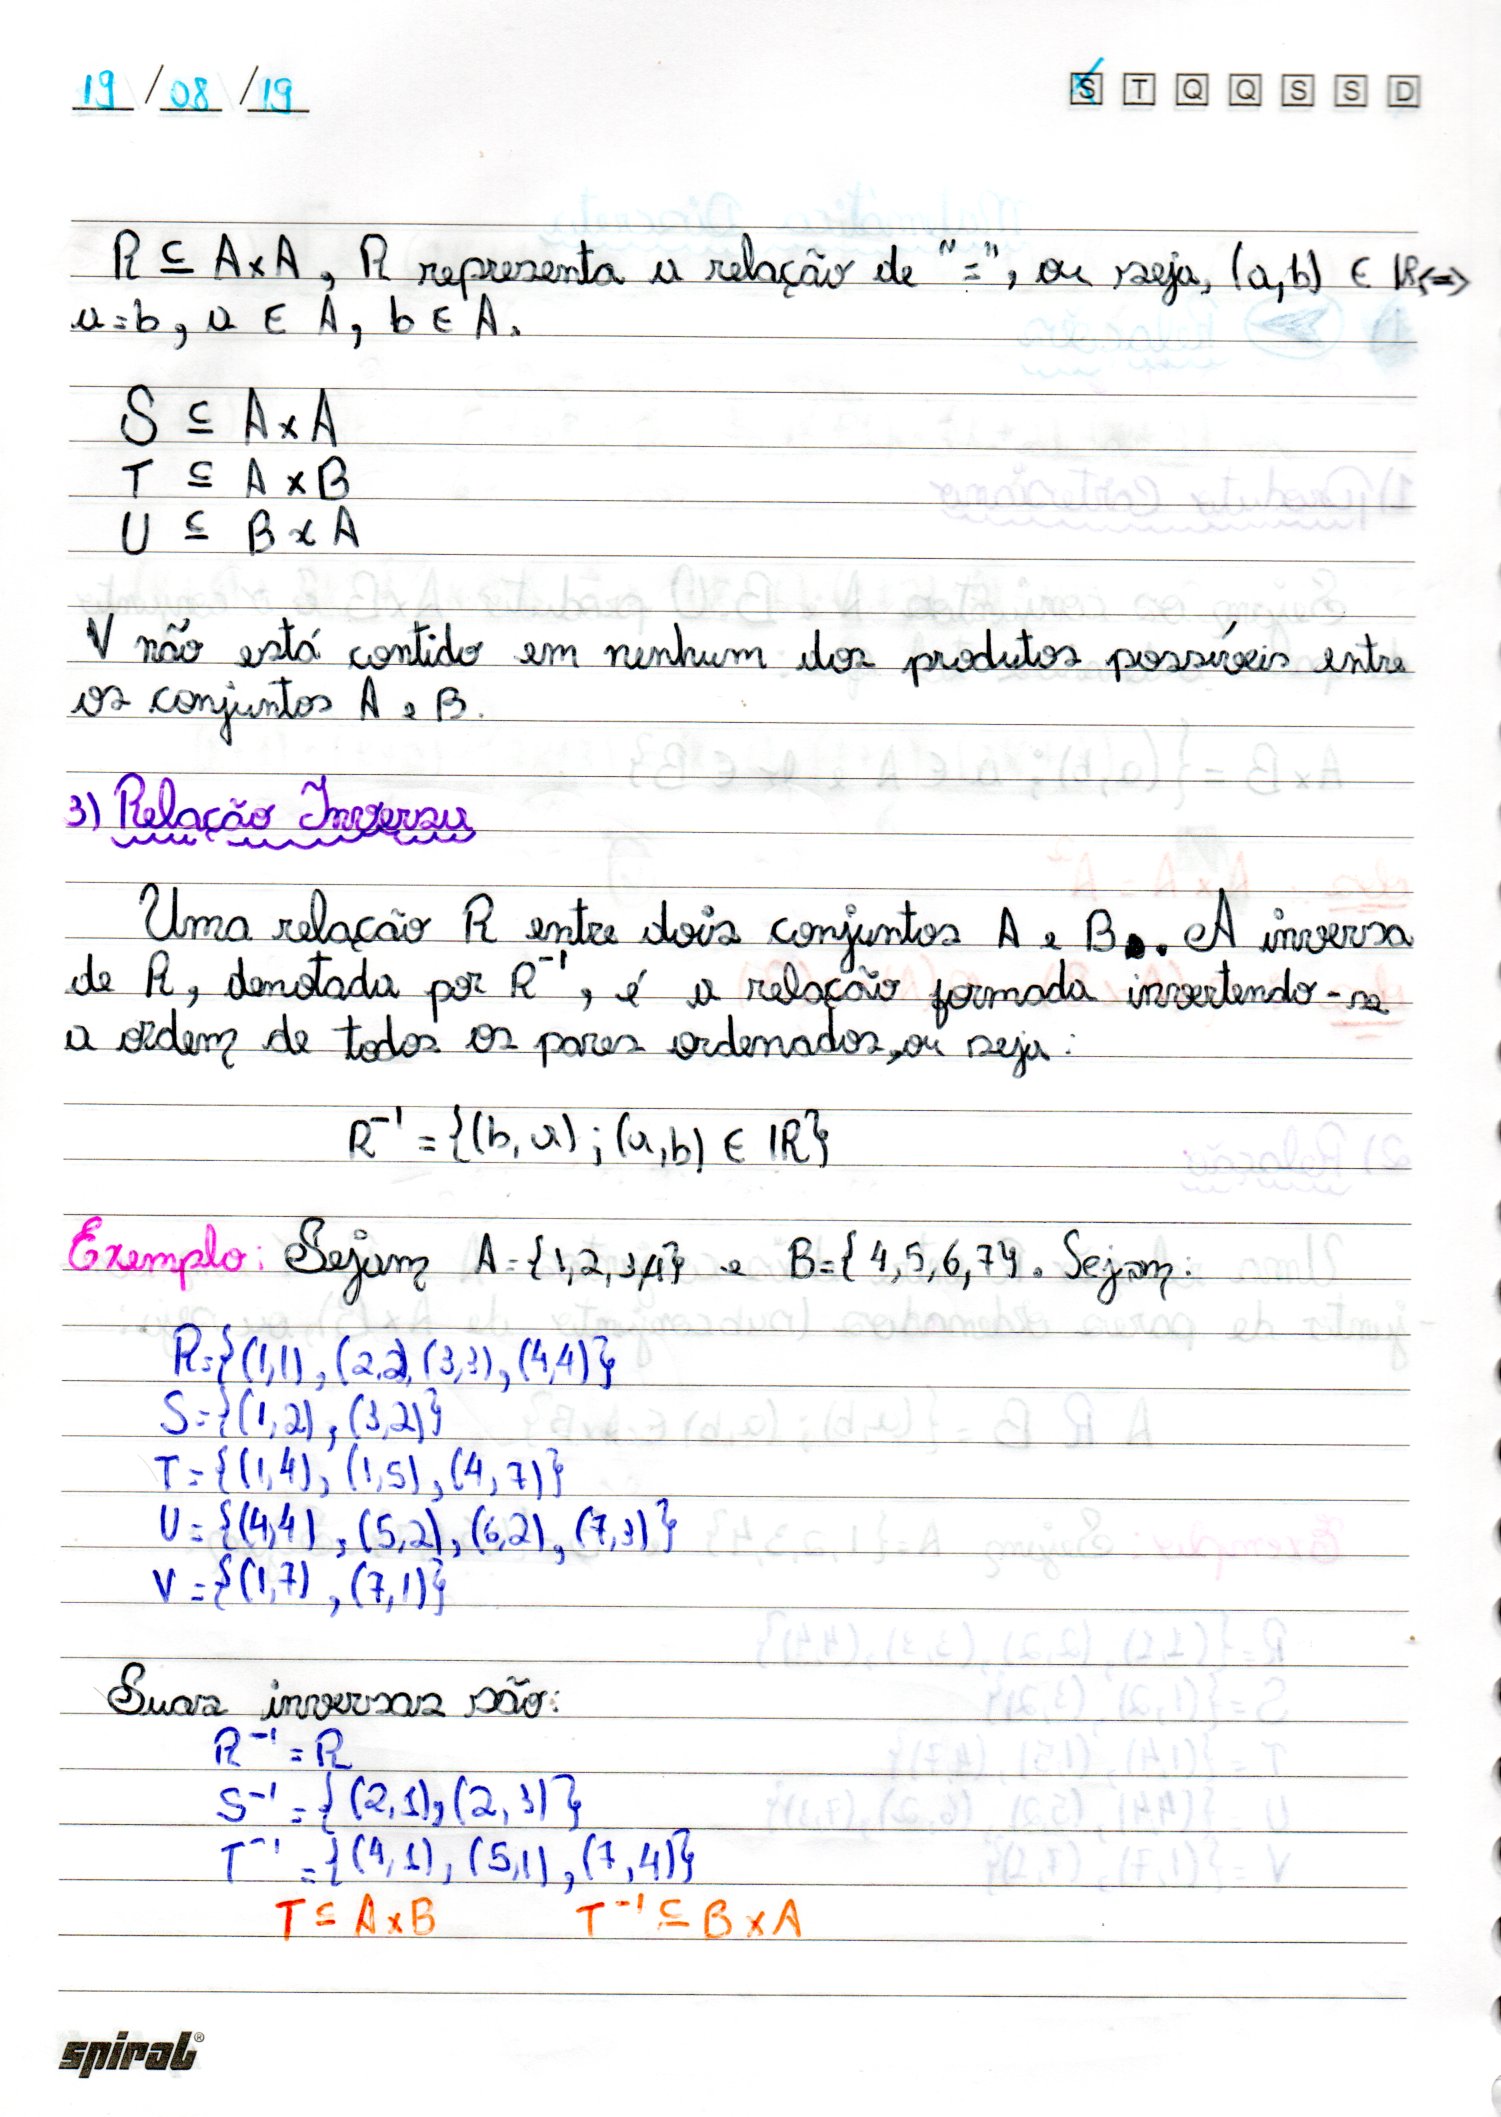 19/08/19
S T Q Q S S D
R ⊆ A×A, R representa a relação de "=", ou seja, (a,b) ∈ IR <=>
a=b, a ∈ A, b ∈ A.
S ⊆ A×A
T ⊆ A×B
U ⊆ B×A
V não está contido em nenhum dos produtos possíveis entre
os conjuntos A e B.
3) Relação Inversa
Uma relação R entre dois conjuntos A e B. A inversa
de R, denotada por R⁻¹, é a relação formada invertendo-se
a ordem de todos os pares ordenados, ou seja:
R⁻¹={(b,a);(a,b) ∈ IR}
Exemplo: Sejam A={1,2,3,4} e B={4,5,6,7}. Sejam:
R={(1,1),(2,2),(3,3),(4,4)}
S={(1,2),(3,2)}
T={(1,4),(1,5),(4,7)}
U={(4,4),(5,2),(6,2),(7,3)}
V={(1,7),(7,1)}
Suas inversas são:
R⁻¹=R
S⁻¹={(2,1),(2,3)}
T⁻¹={(4,1),(5,1),(7,4)}
T ⊆ A×B T⁻¹ ⊆ B×A
spiral®